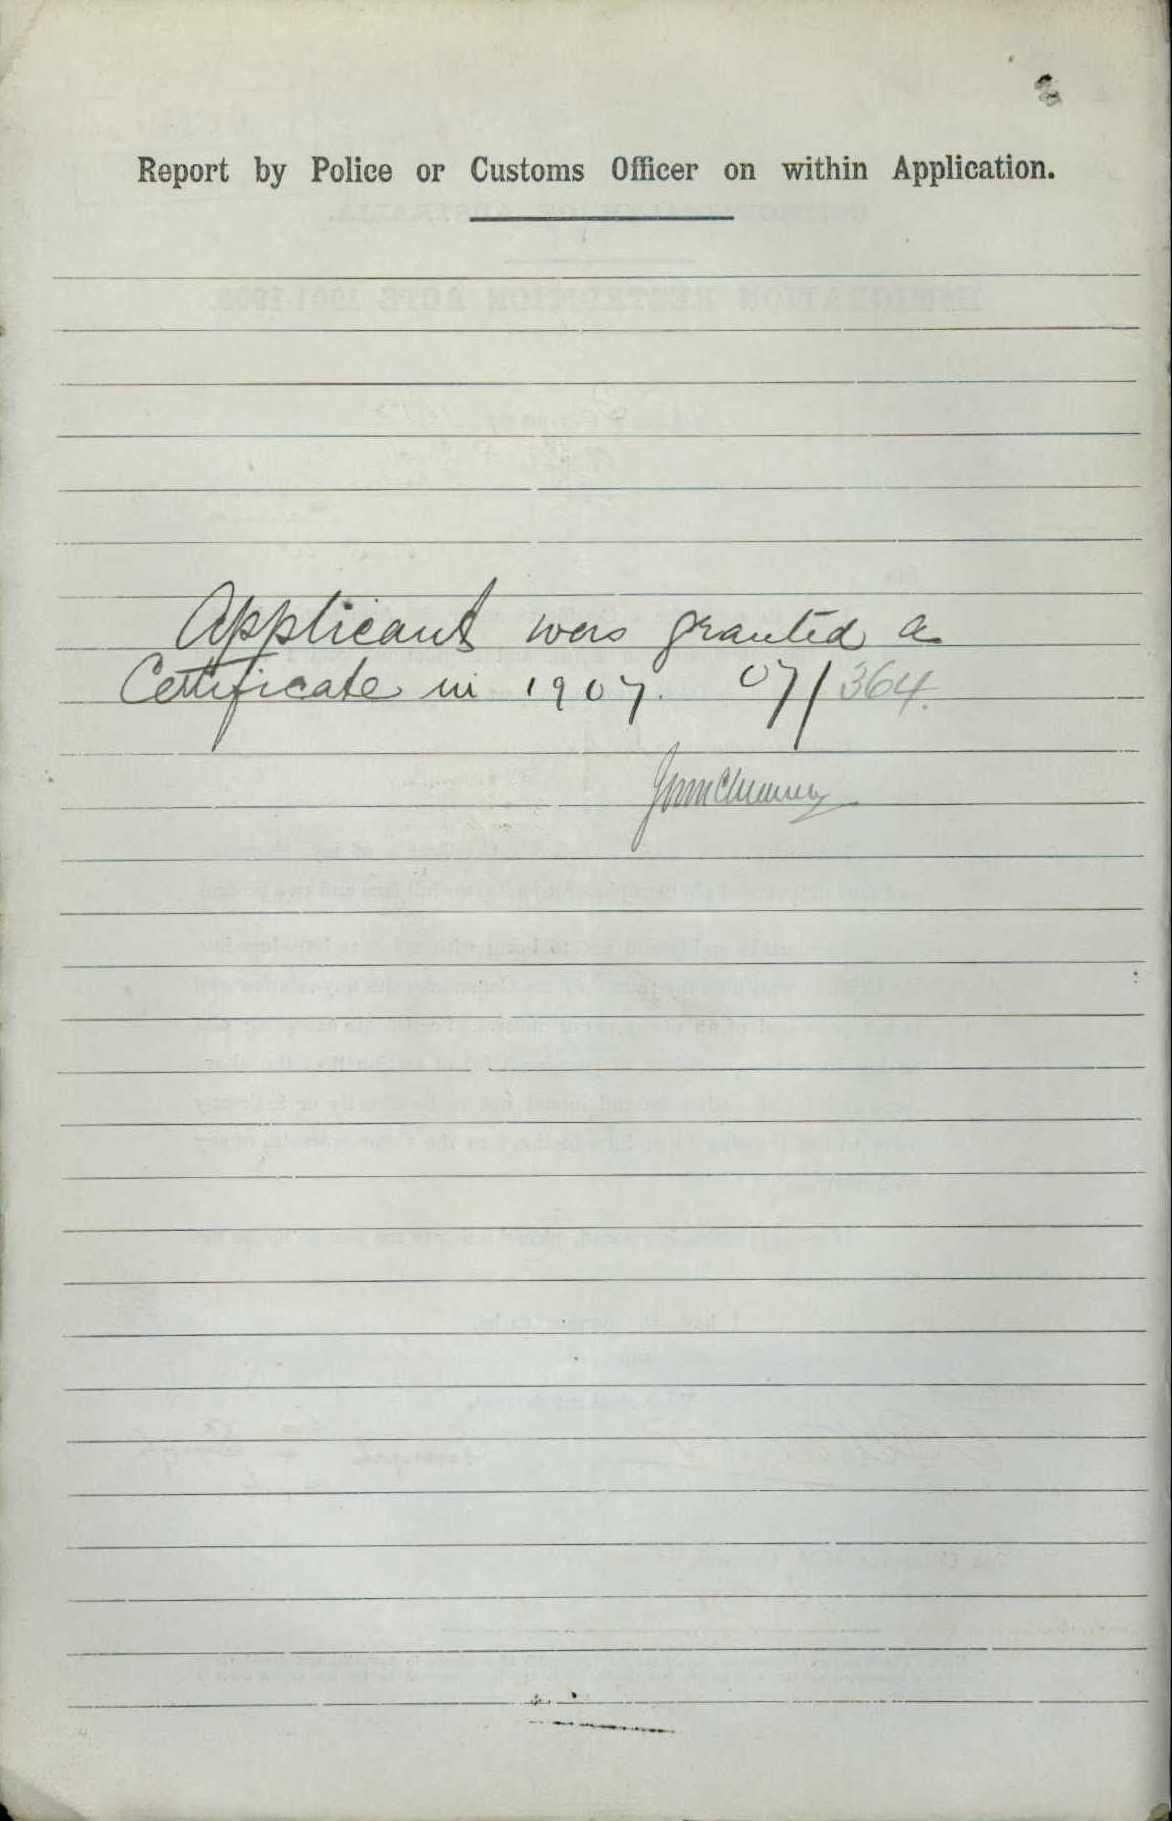 Report by Police or Customs Officer on within Application.
Applicant was granted a
Certificate in 1907. 07/364.